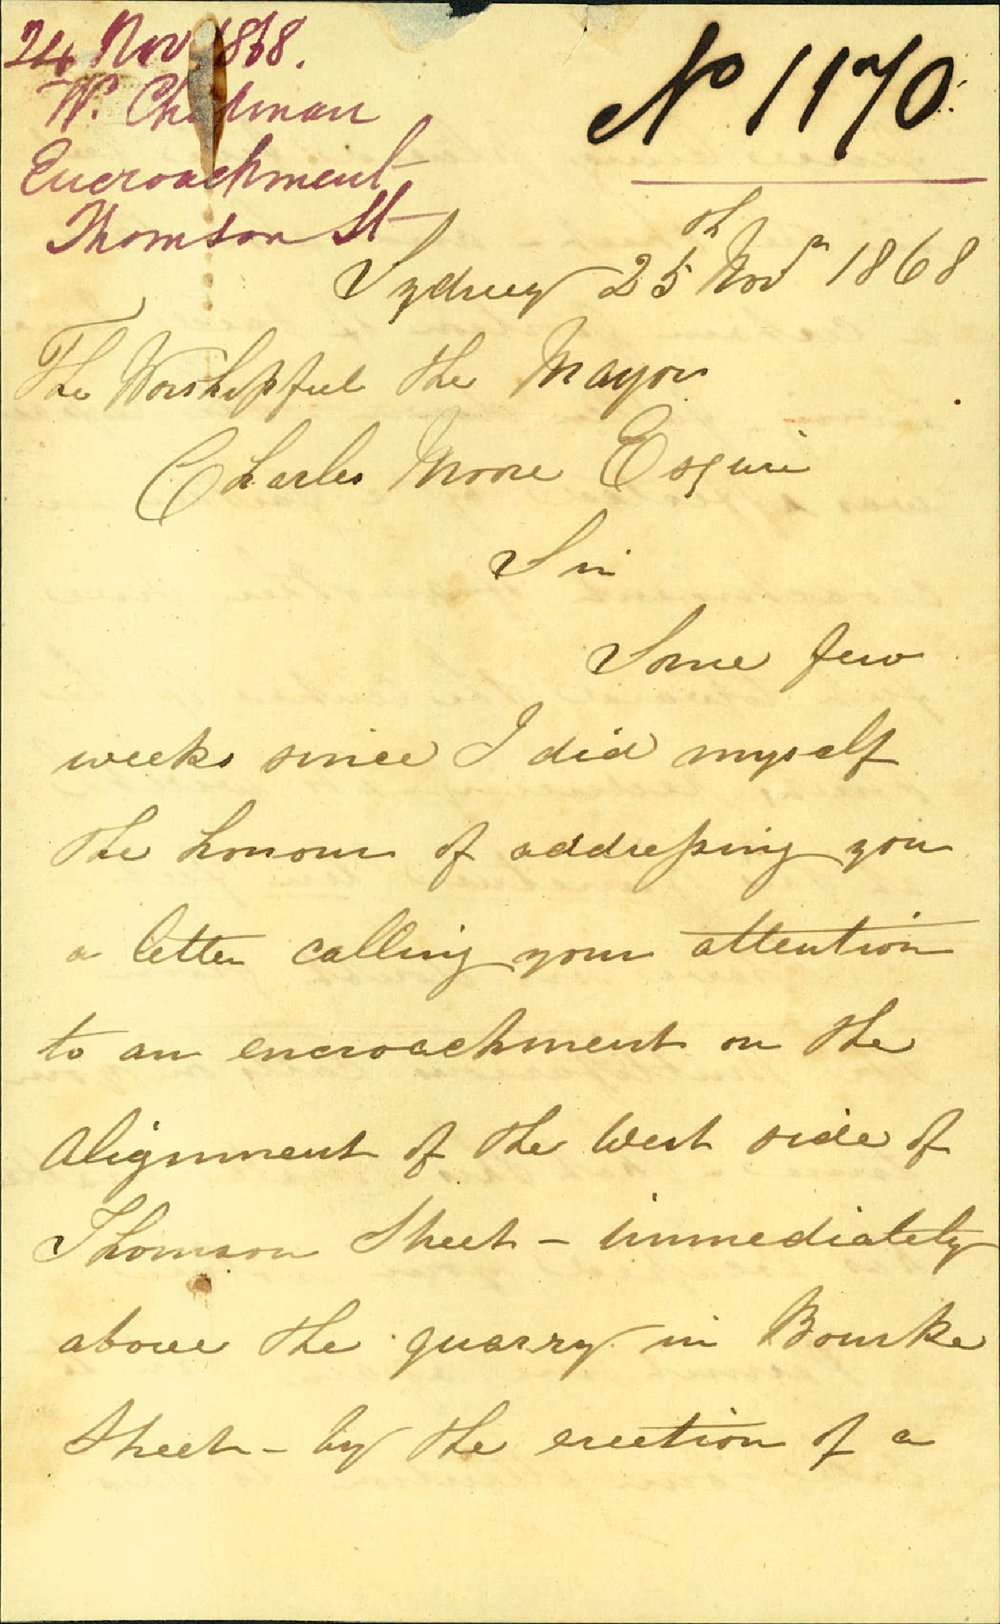 24 Nov 1868.
W. Chapman
Encroachment
Thomson St
No 1170
Sydney 25th Novr 1868
The Worshipful the Mayor
Charles Moore Esquire
Sir
Some few
weeks since I did myself
the honour of addressing you
a letter calling your attention
to an encroachment on the
Alignment of the West side of
Thomson Street – immediately
above the quarry in Bourke
Street – by the erection of a